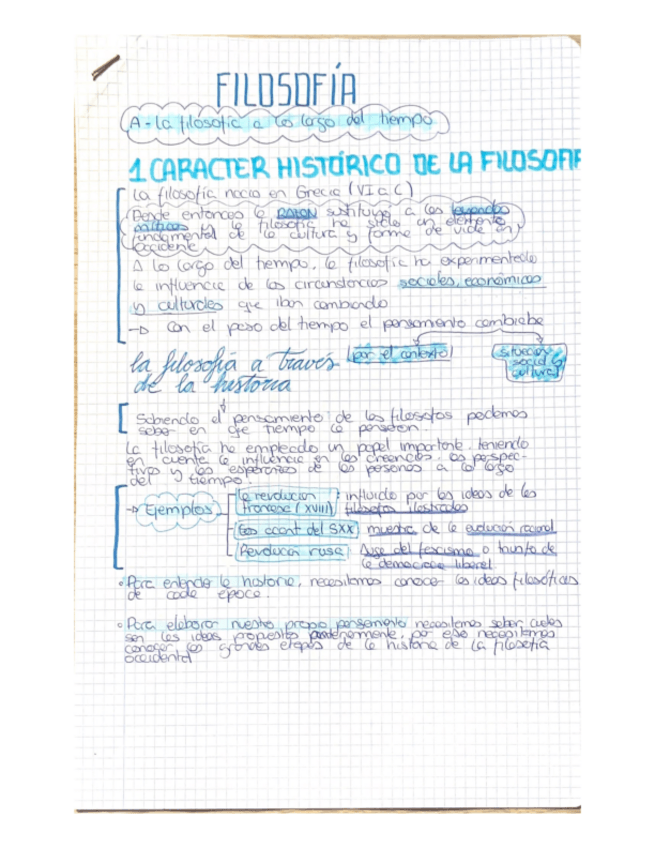 FILOSOFÍA
A - La filosofía a lo largo del tiempo
1 CARACTER HISTÓRICO DE LA FILOSOFÍA
La filosofía nacio en Grecia (VI a C)
Desde entonces la RAZON sustituye a las leyendas
míticas y la filosofía ha sido un elemento
fundamental de la cultura y forma de vida en
occidente
A lo largo del tiempo, la filosofía ha experimentado
la influencia de las circunstancias sociales, económicas
y culturales que iban cambiando
-> Con el paso del tiempo el pensamiento cambiaba
por el contexto
situacion
social y
cultural
la filosofía a través
de la historia
Sabiendo el pensamiento de los filosofos podemos
saber en que tiempo lo pensaron
La filosofía ha empleado un papel importante, teniendo
en cuenta la influencia en las creencias, las perspec-
tivas y las esperanzas de las personas a lo largo
del tiempo.
-> Ejemplos
la revolucion
francesa (XVIII)
influida por las ideas de los
filosofos ilustrados
del SXX muestra de la
Revolucion rusa
del fascismo o triunfo de
la democracia liberal
• Para entender la historia, necesitamos conocer las ideas filosóficas
de cada epoca.
• Para elaborar nuestro propio pensamiento necesitamos saber cuales
son las ideas propuestas por eso necesitamos
conocer las grandes etapas de la historia de la filosofía
occidental